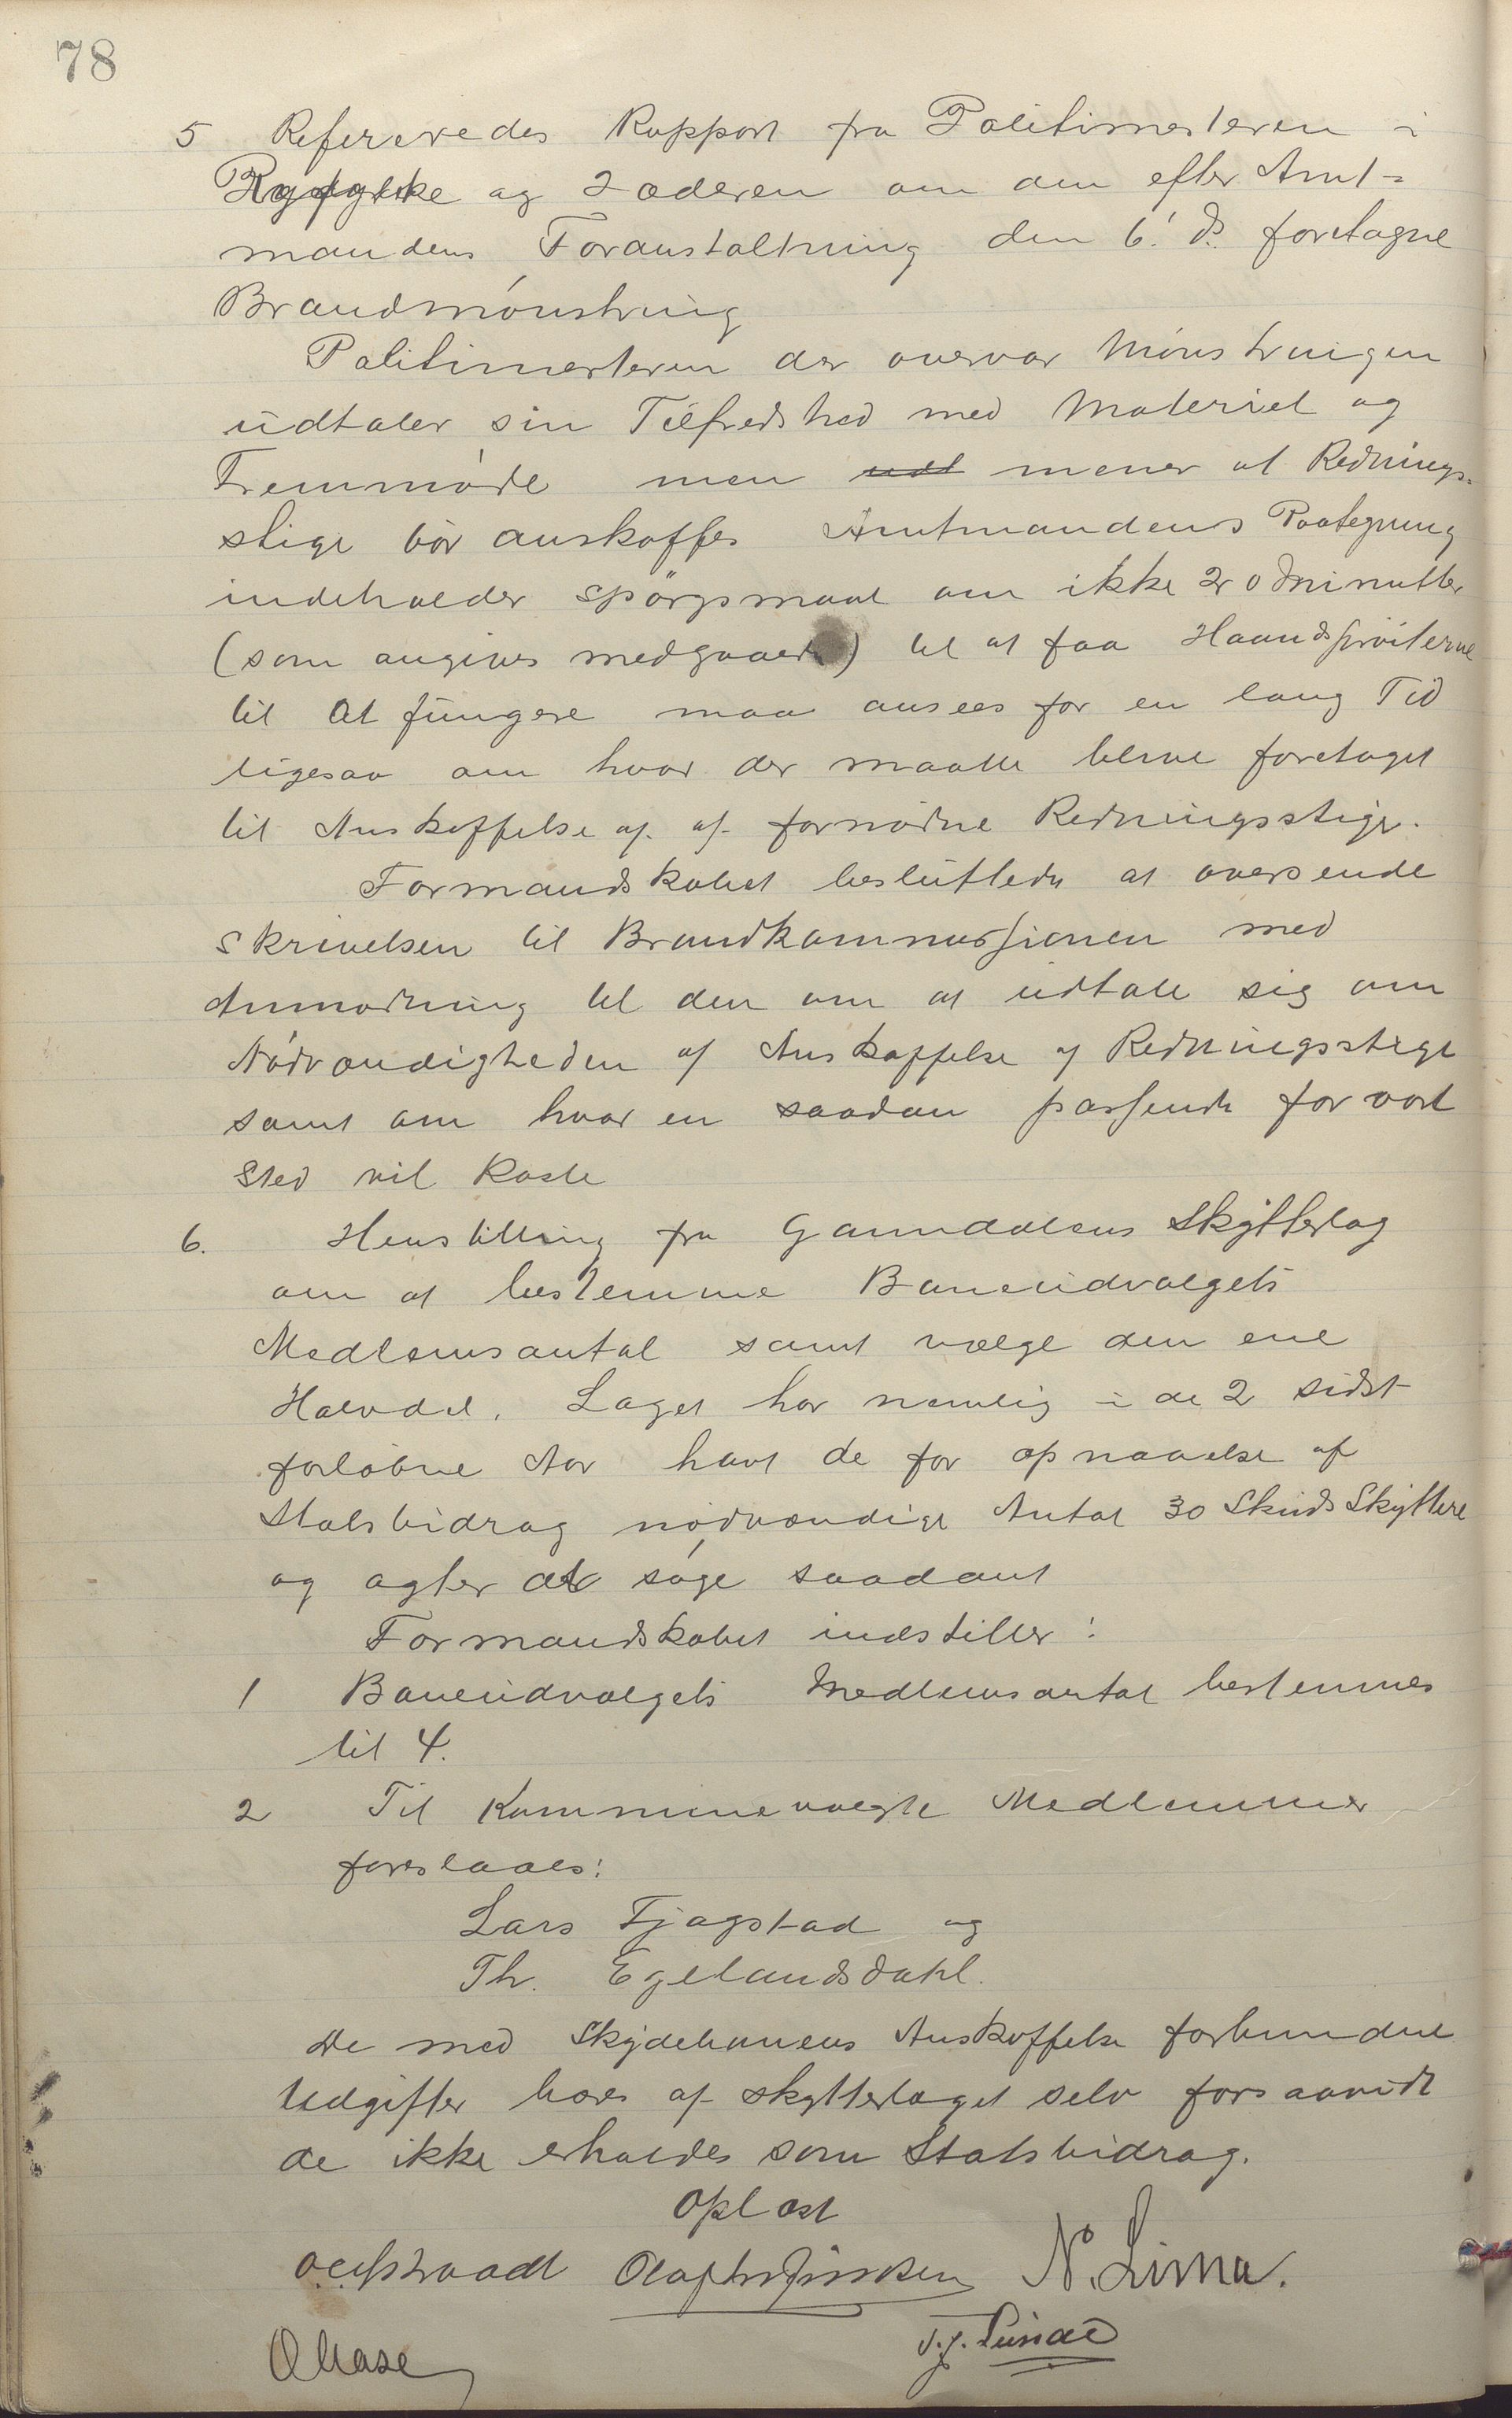 78
5 Refereredes Rapport fra Politimesteren i
Ryfylke og Jæderen om den efter Amt-
mandens Foranstaltning den 6' ds. foretagne
Brandmønstring
Politimesteren der overvar Mønstringen
udtaler sin Tilfredshed med Materiel og
Fremmøde men udt mener at Rednings-
stige bør anskaffes Amtmandens Paategning
indeholder spørgsmaal om ikke 20 Minutter
(som angives medgaaede) til at faa Haandsprøiterne
til at fungere maa ansees for en lang Tid
ligesaa om hvad der maatte blive foretaget
til Anskaffelse af af fornødne Redningsstige.
Formandskabet besluttede at oversende
Skrivelsen til Brandkommissionen med
Anmodning til den om at udtale sig om
Nødvendigheden af Anskaffelse af Redningsstige
samt om hvad en saadan passende for vort
Sted vil koste
6. Henstilling fra Ganndalens Skytterlag
om at bestemme Baneudvalgets
Medlemsantal samt vælge den ene
Halvdel. Laget har nemlig i de 2 sidst
forløbne Aar havt de for opnaaelse af
Statsbidrag nødvendige Antal 30 Skuds Skyttere
og agter at søge saadant
Formandskabet indstiller:
1 Baneudvalgets Medlemsantal bestemmes
til 4.
2 Til Kommunevalgte Medlemmer
foreslaaes:
Lars Tjagstad og
Th. Egelandsdahl.
De med Skydebanens Anskaffelse forbundne
Udgifter bæres af skytterlaget selv forsaavidt
de ikke erholdes som Statsbidrag.
Oplæst
N. Lima.
O Aase